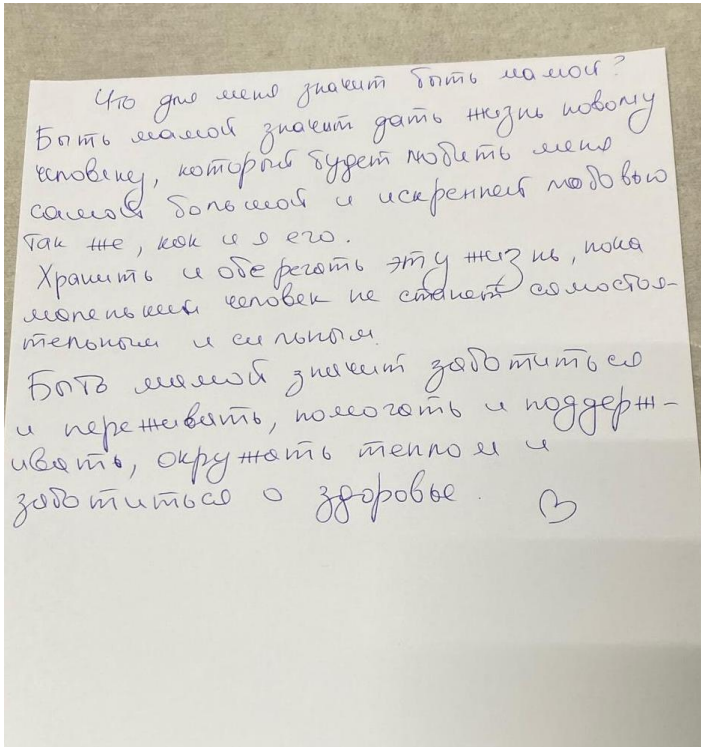 Что для меня значит быть мамой?
Быть мамой значит дать жизнь новому
человеку, который будет любить меня
самой большой и искренней любовью
так же, как и я его.
Хранить и оберегать эту жизнь, пока
маленький человек не станет самостоя-
тельным и сильным.
Быть мамой значит заботиться
и переживать, помогать и поддерж-
ивать, окружать теплом и
заботиться о здоровье.